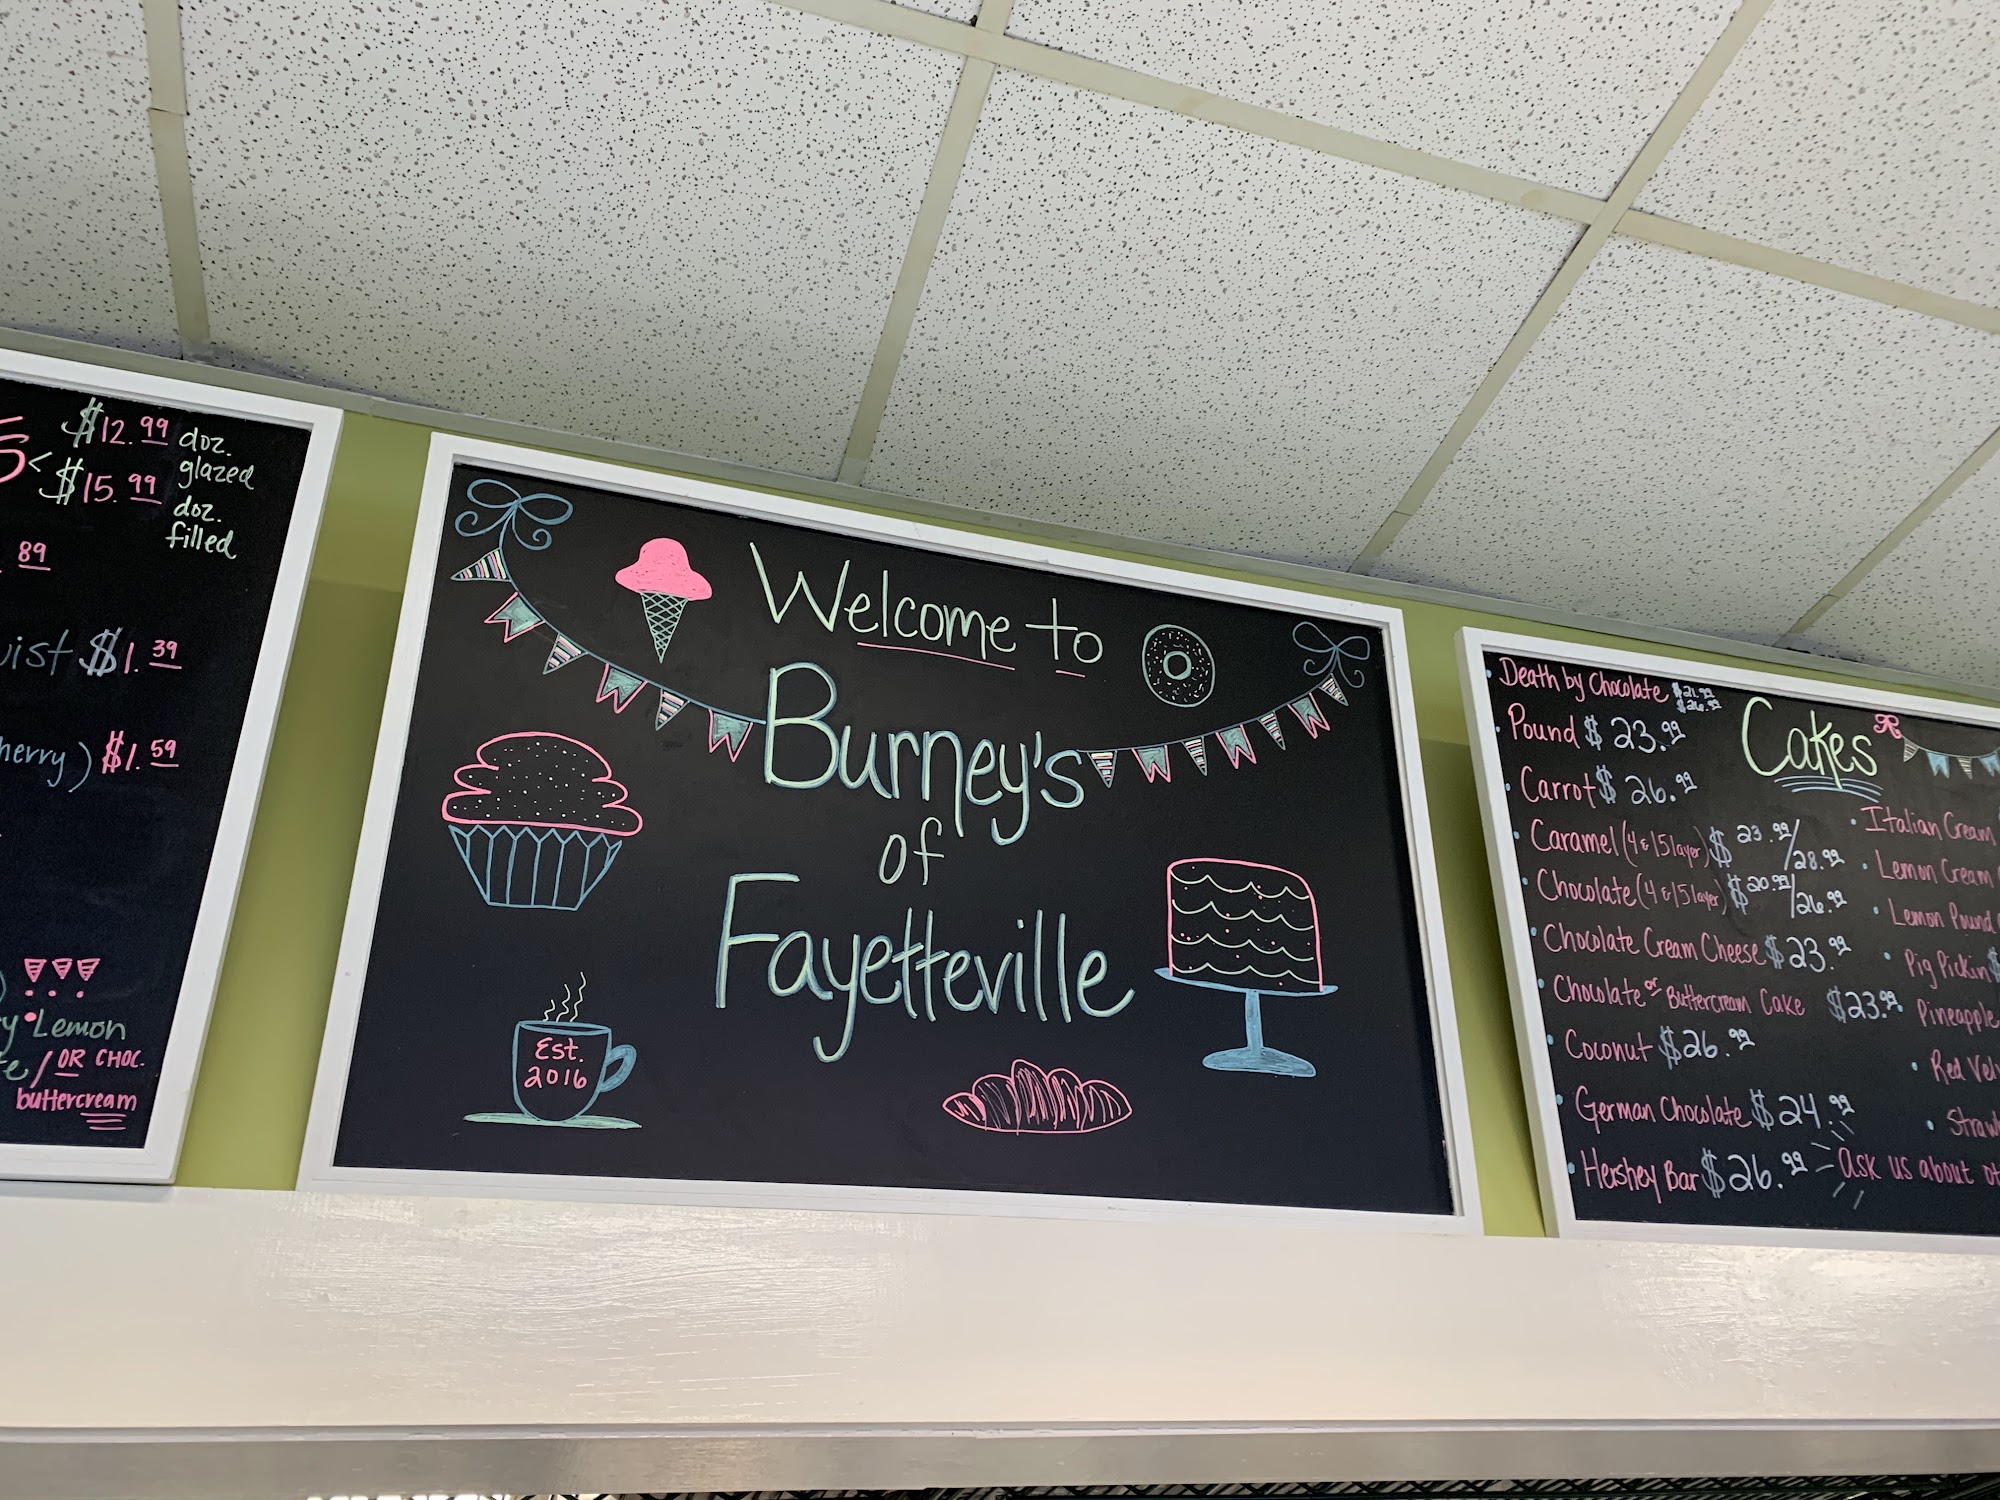 $12.99 doz.
glazed
< $15.99 doz.
filled
.89
$1.39
$1.59
Lemon
/ OR CHOC.
buttercream
Welcome to
Burney's
of
Fayetteville
Est.
2016
Cakes
• Death by Chocolate $21.99
$26.99
• Pound $23.99
• Carrot $26.99
• Caramel (4 & 15 layer) $23.99/28.99
• Chocolate (4 & 15 layer) $20.99/26.99
• Chocolate Cream Cheese $23.99
• Chocolate or Buttercream Cake $23.99
• Coconut $26.99
• German Chocolate $24.99
• Hershey Bar $26.99
• Italian Cream
• Lemon Cream
• Lemon Pound
• Pig Pickin $
• Pineapple
• Red Vel
• Straw
Ask us about ot